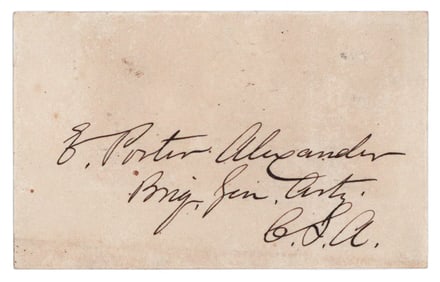 E. Porter Alexander
Brig. Gen. Arty.
C.S.A.